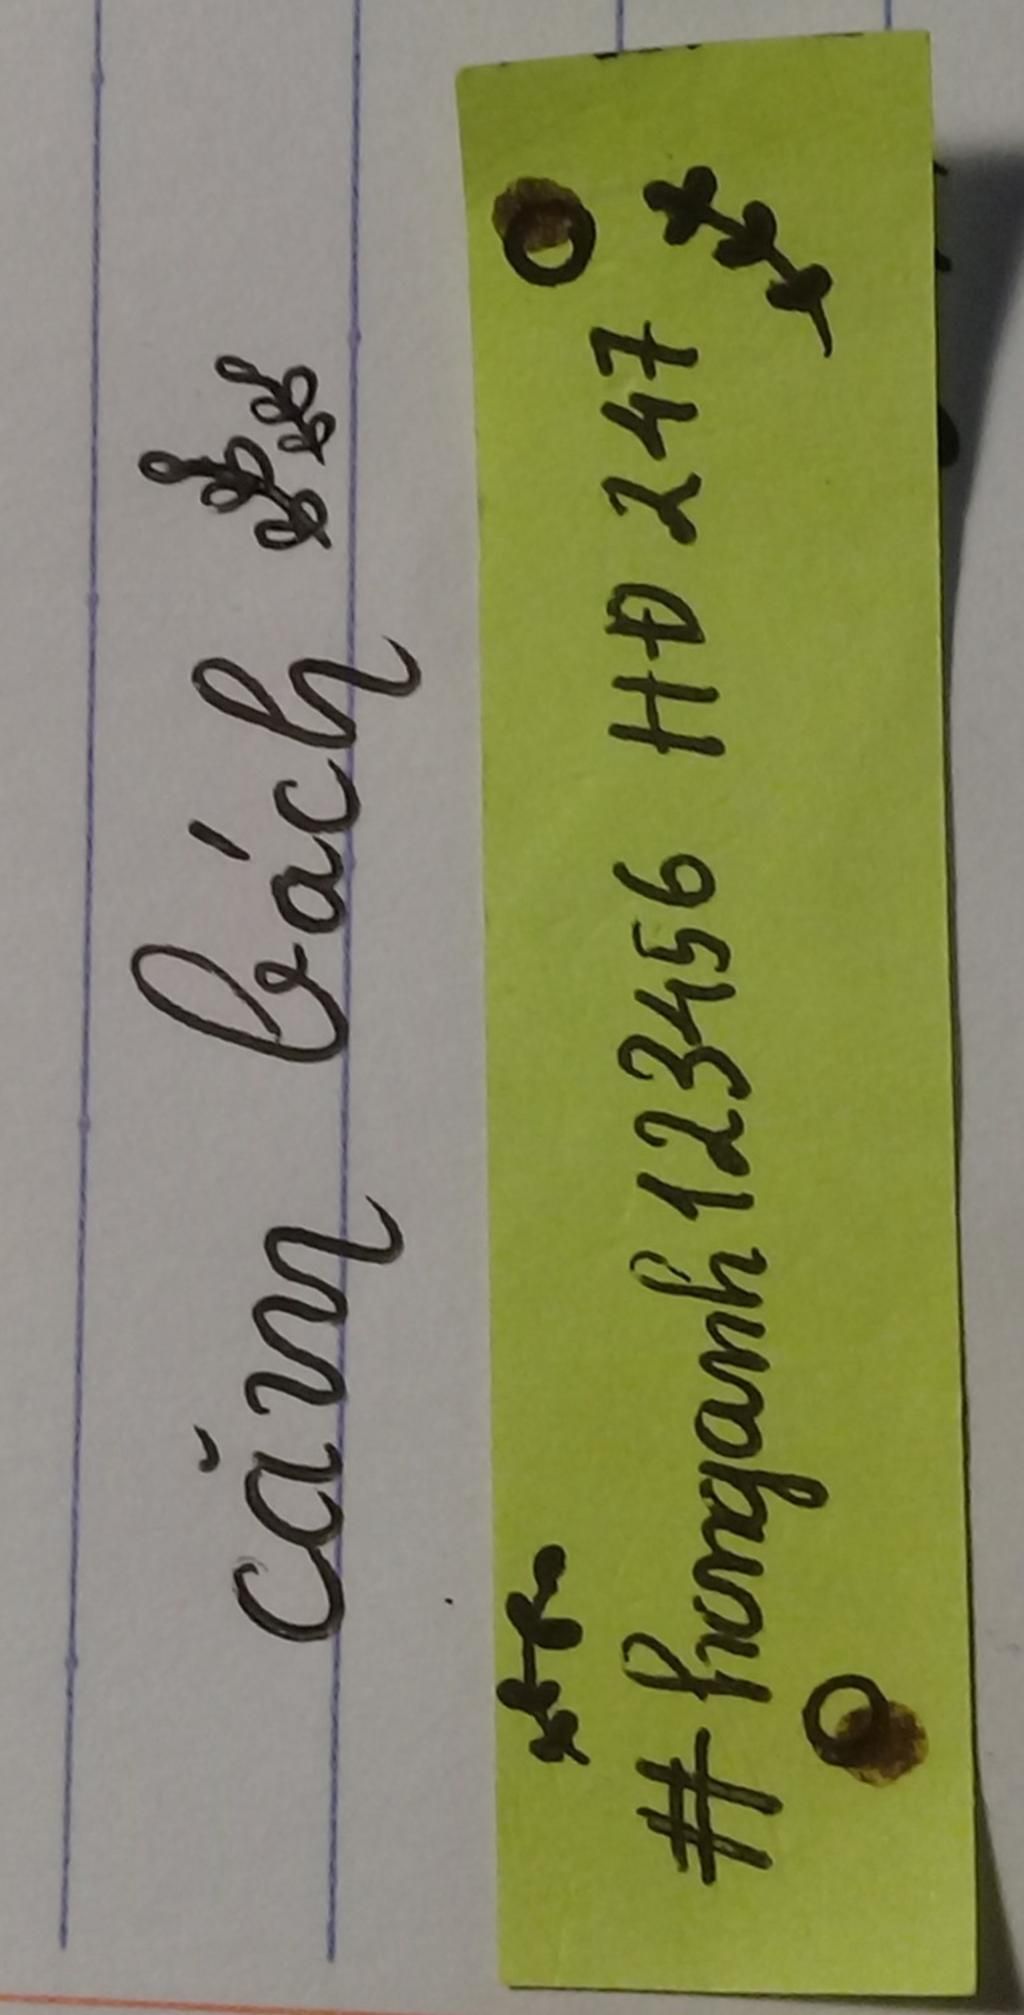 căm bách
#hnganh123456 HĐ 247